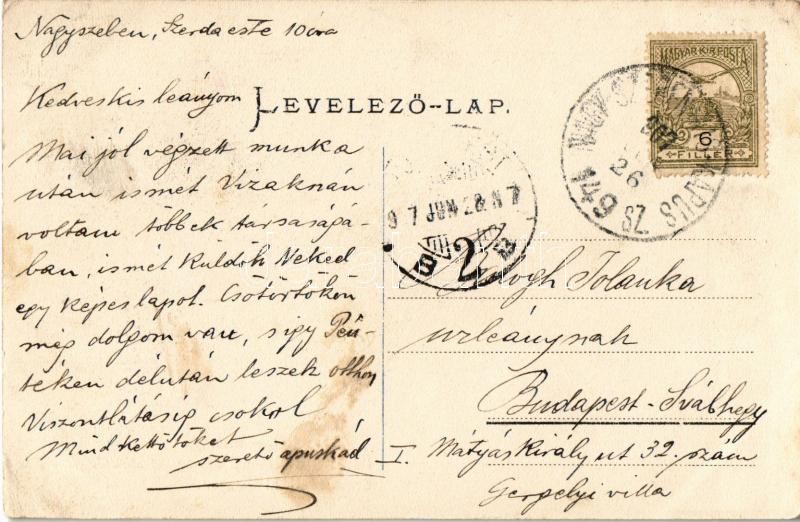 Nagyszeben, Szerda este 10 óra
Kedves kis leányom
LEVELEZŐ-LAP.
Mai jól végzett munka
után ismét Vizaknán
voltam többek társaságá-
ban, ismét küldök Neked
egy képes lapot. Csötörtökön
még dolgom van, s igy Pén-
teken délután leszek otthon
Viszontlátásig csokol
Mind kettőtöket
szerető apuskád
MAGYAR KIR. POSTA
6
FILLÉR
149
26
SZ.
2
Jolanka
urleánynak
Budapest-Svábhegy
I. Mátyás király ut 32. szám
Gergelyi villa